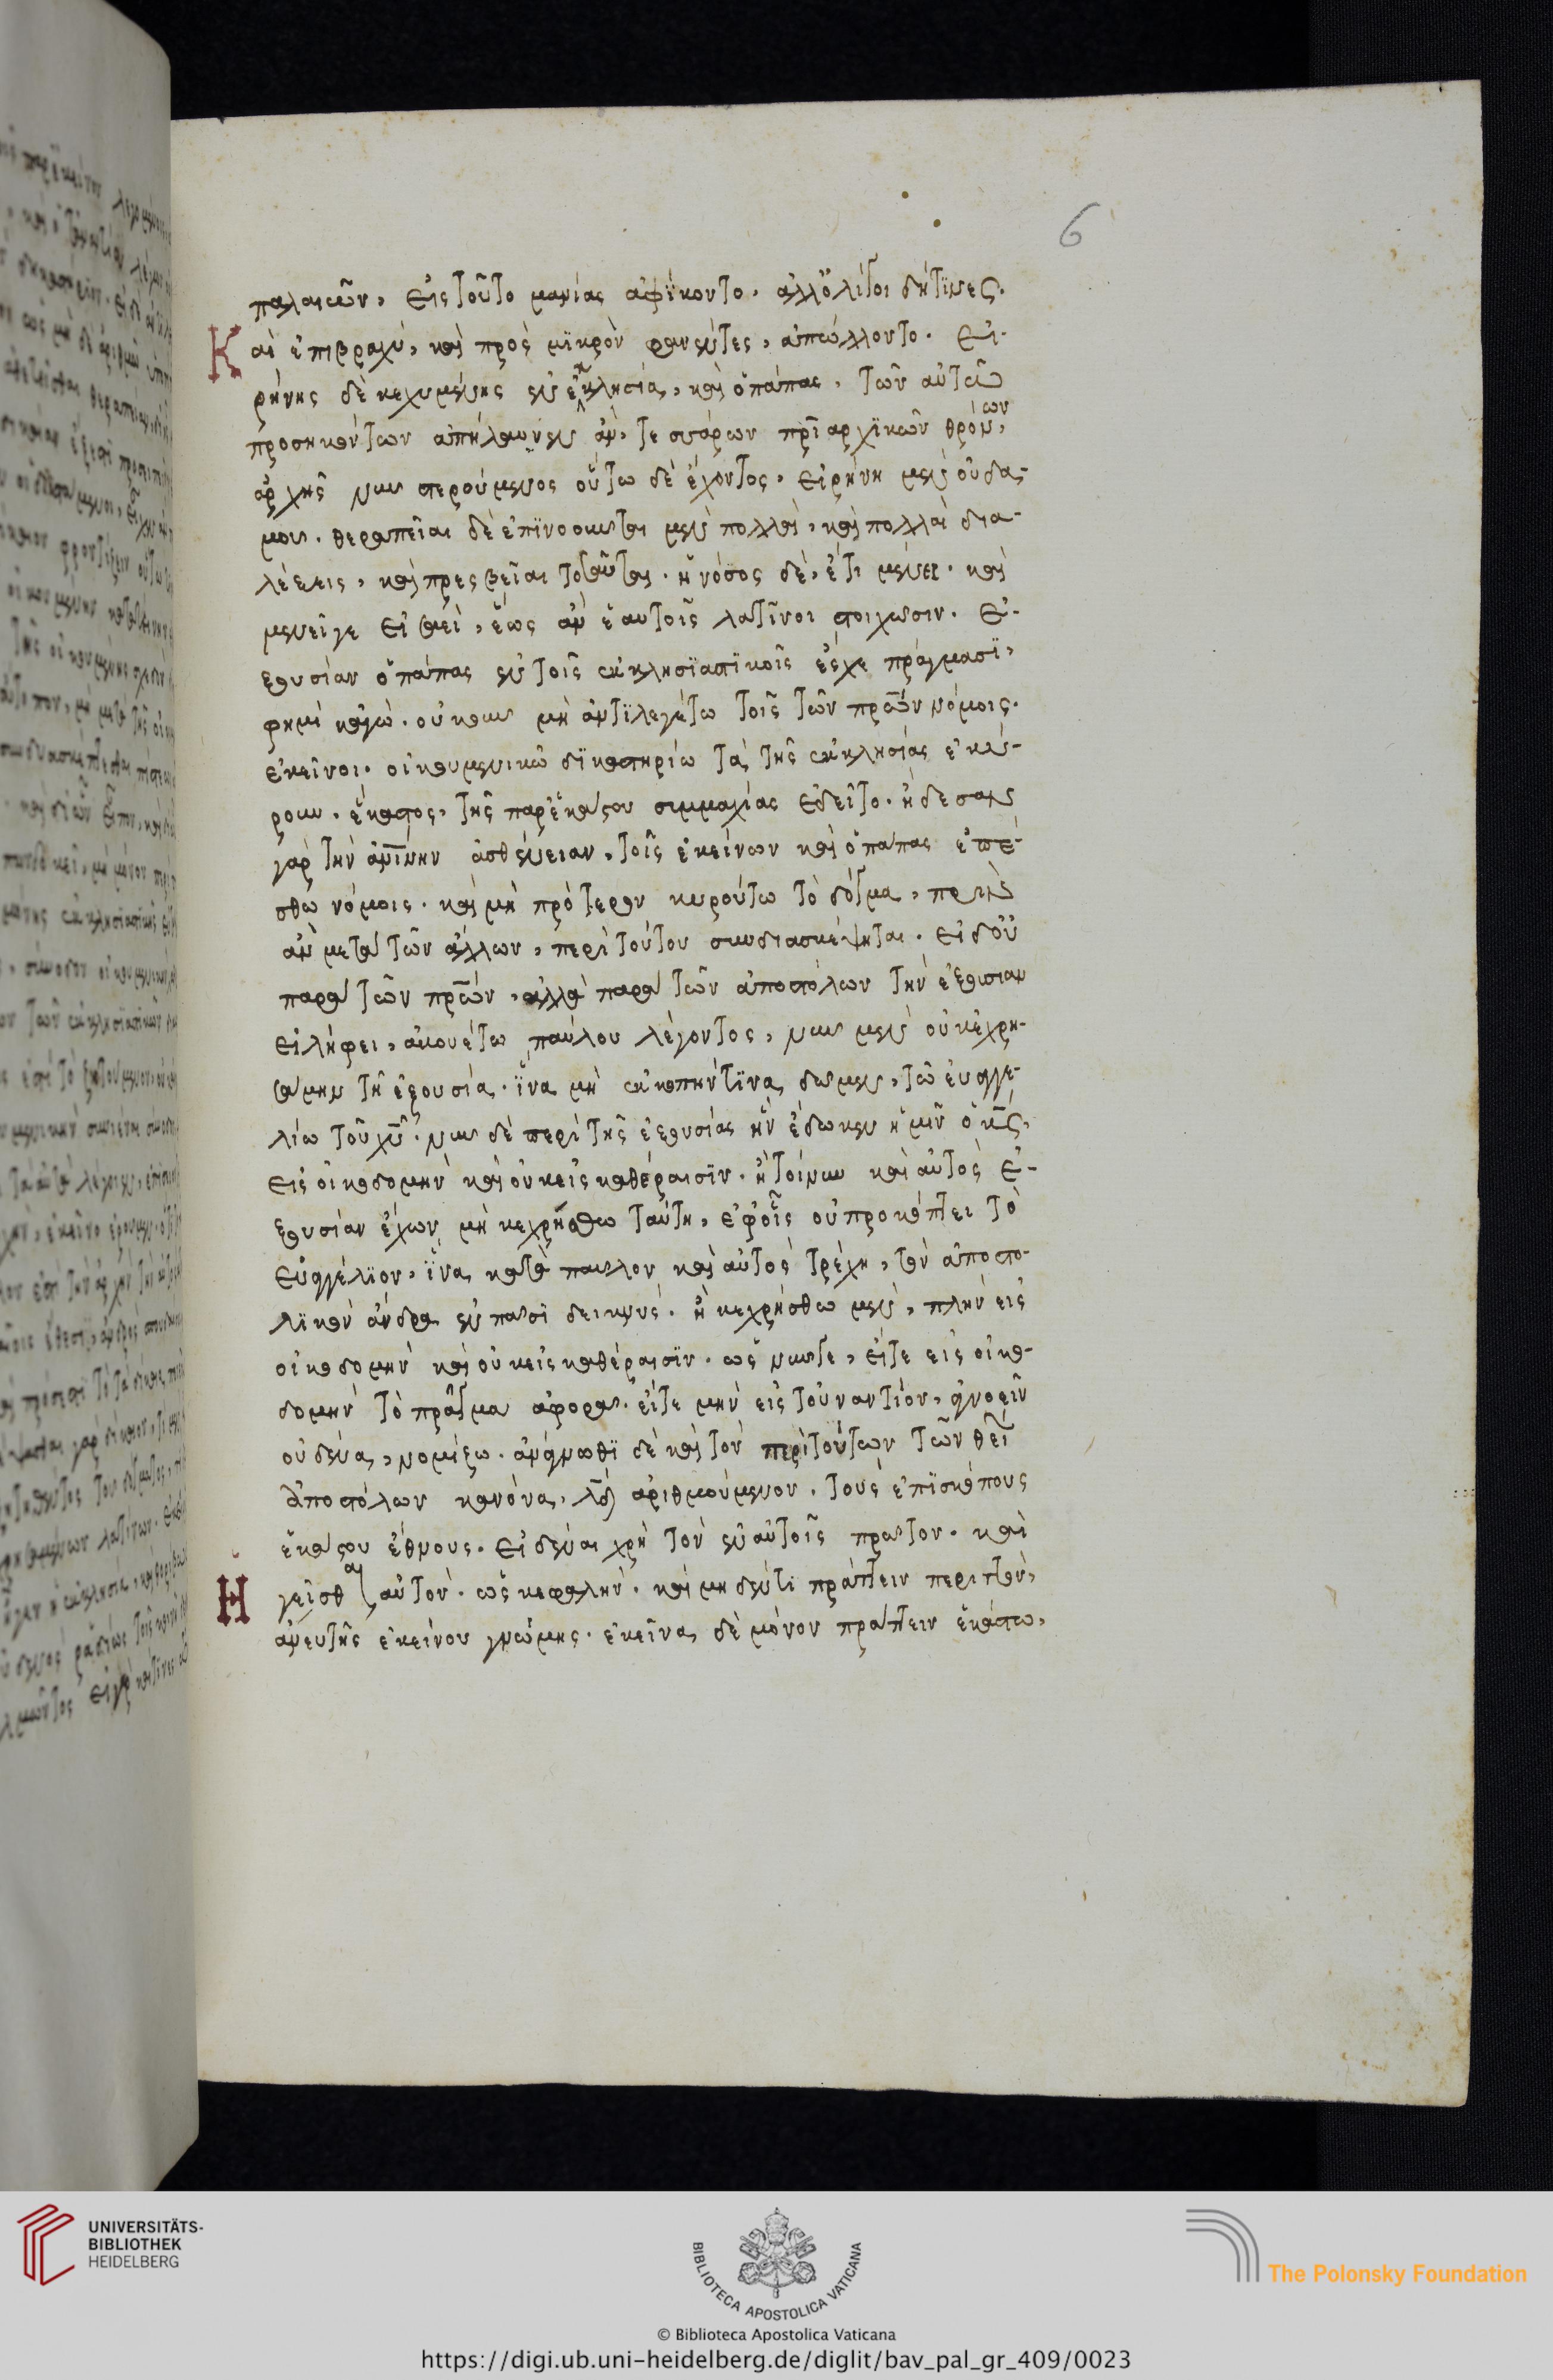 6
παλαιῶν, εἰς τοῦτο μανίας ἀφΐκοντο. ἀλλ' ὀλίγοι δήτϊνες.
Καὶ ἐπιβραχύ, καὶ πρὸς μϊκρὸν φανέντες, ἀπώλλοντο. Εἰ-
ρήνης δὲ κεχυμένης ἐν ἐκκλησία, καὶ ὁ πάπας, τῶν αὐτῶ
προσηκόντων ἀπήλαυνεν ἄν, τεσσάρων πρϊαρχϊκῶν θρόνων,
ἀρχῆς νῦν στερούμενος οὕτω δὲ ἔχοντος, εἰρήνη μὲν οὐδα-
μοῦ. θεραπεῖαι δὲ ἐπϊνοοῦνται μὲν πολλαὶ, καὶ πολλαὶ δια-
λέξεις, καὶ πρεσβεῖαι τοσαῦται. ἡ νόσος δὲ, ἔτι μένει. καὶ
μενεῖγε εἰσαεὶ, ἕως ἂν ἑαυτοῖς λατῖνοι στοιχῶσιν. Ἐ-
ξουσίαν ὁ πάπας ἐν τοῖς ἐκκλησϊαστϊκοῖς ἔσχε πράγμασϊ,
φημὶ κἀγώ. οὐκοῦν μὴ ἀντϊλεγέτω τοῖς τῶν πρ̅ων νόμοις.
ἐκεῖνοι. οἰκουμενικῶ δϊκαστηρίω τὰ τῆς ἐκκλησίας ἐκύ-
ρουν. ἕκαστος, τῆς παρ' ἑκάστου συμμαχίας ἐδεῖτο. ἤδεσαν
γὰρ τὴν ἀν̅ΐνην ἀσθένειαν, τοῖς ἐκείνων καὶ ὁ πάπας ἑπέ-
σθω νόμοις. καὶ μὴ πρότερον κυρούτω τὸ δόγμα, πρὶν
ἂν μετὰ τῶν ἄλλων, περὶ τούτου συνδιασκέψηται. εἰ δ' οὐ
παρὰ τῶν πρ̅ων, ἀλλὰ παρὰ τῶν ἀποστόλων τὴν ἐξουσίαν
εἰλήφει, ἀκουέτω παύλου λέγοντος, νῦν μὲν οὐκ ἐχρη-
σάμην τῆ ἐξουσία. ἵνα μὴ ἐκκοπήν τϊνα δῶμεν, τῶ εὐαγγε-
λίω τοῦ χ̅υ. νῦν δὲ περὶ τῆς ἐξουσίας ἣν ἔδωκεν ἡμῖν ὁ κ̅ς,
εἰς οἰκοδομὴν καὶ οὐκ εἰς καθαίρεσϊν. ἢ τοίνυν καὶ αὐτὸς ἐ-
ξουσίαν ἔχων μὴ κεχρήσθω ταύτη, ἐφ' οἷς οὐ προκόπτει τὸ
εὐαγγέλϊον, ἵνα κατὰ παῦλον καὶ αὐτὸς τρέχη, τὸν ἀποστο-
λϊκὸν ἄνδρα ἐν πᾶσϊ δεικνύς. ἢ κεχρήσθω μὲν, πλὴν εἰς
οἰκοδομὴν καὶ οὐκ εἰς καθαίρεσϊν. ὡς νῦν γε, εἴτε εἰς οἰκο-
δομὴν τὸ πρᾶγμα ἀφορᾶ. εἴτε μὴν εἰς τοὐναντίον, ἀγνοεῖν
οὐδένα, νομίζω. ἀνάγνωθϊ δὲ καὶ τὸν περὶ τούτων τῶν θεί
ἀποστόλων κανόνα, λδ ἀριθμούμενον. τοὺς ἐπϊσκόπους
ἑκάστου ἔθνους. εἰδέναι χρὴ τὸν ἐν αὐτοῖς πρῶτον. καὶ
Ἡγεῖσθαι αὐτὸν. ὡς κεφαλὴν. καὶ μηδέν τι πράττειν περιττὸν,
ἄνευ τῆς ἐκείνου γνώμης. ἐκεῖνα δὲ μόνον πράττειν ἑκάστω,
UNIVERSITÄTS-
BIBLIOTHEK
HEIDELBERG
BIBLIOTECA APOSTOLICA VATICANA
The Polonsky Foundation
© Biblioteca Apostolica Vaticana
https://digi.ub.uni-heidelberg.de/diglit/bav_pal_gr_409/0023